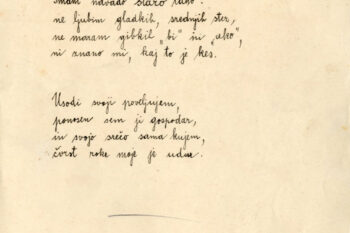 imam navado staro tako:
ne ljubim gladkih, srednjih ster,
ne maram gibkih "bi" in "ako",
ni znano mi, kaj to je "kes".
Usodi svoji poveljujem,
ponosen sem ji gospodar,
in svojo srečo sama kujem,
čvrst roke moje je udar.